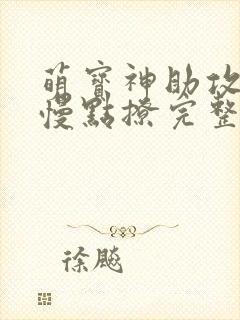 萌寶神助攻
慢點撩完整
徐飈